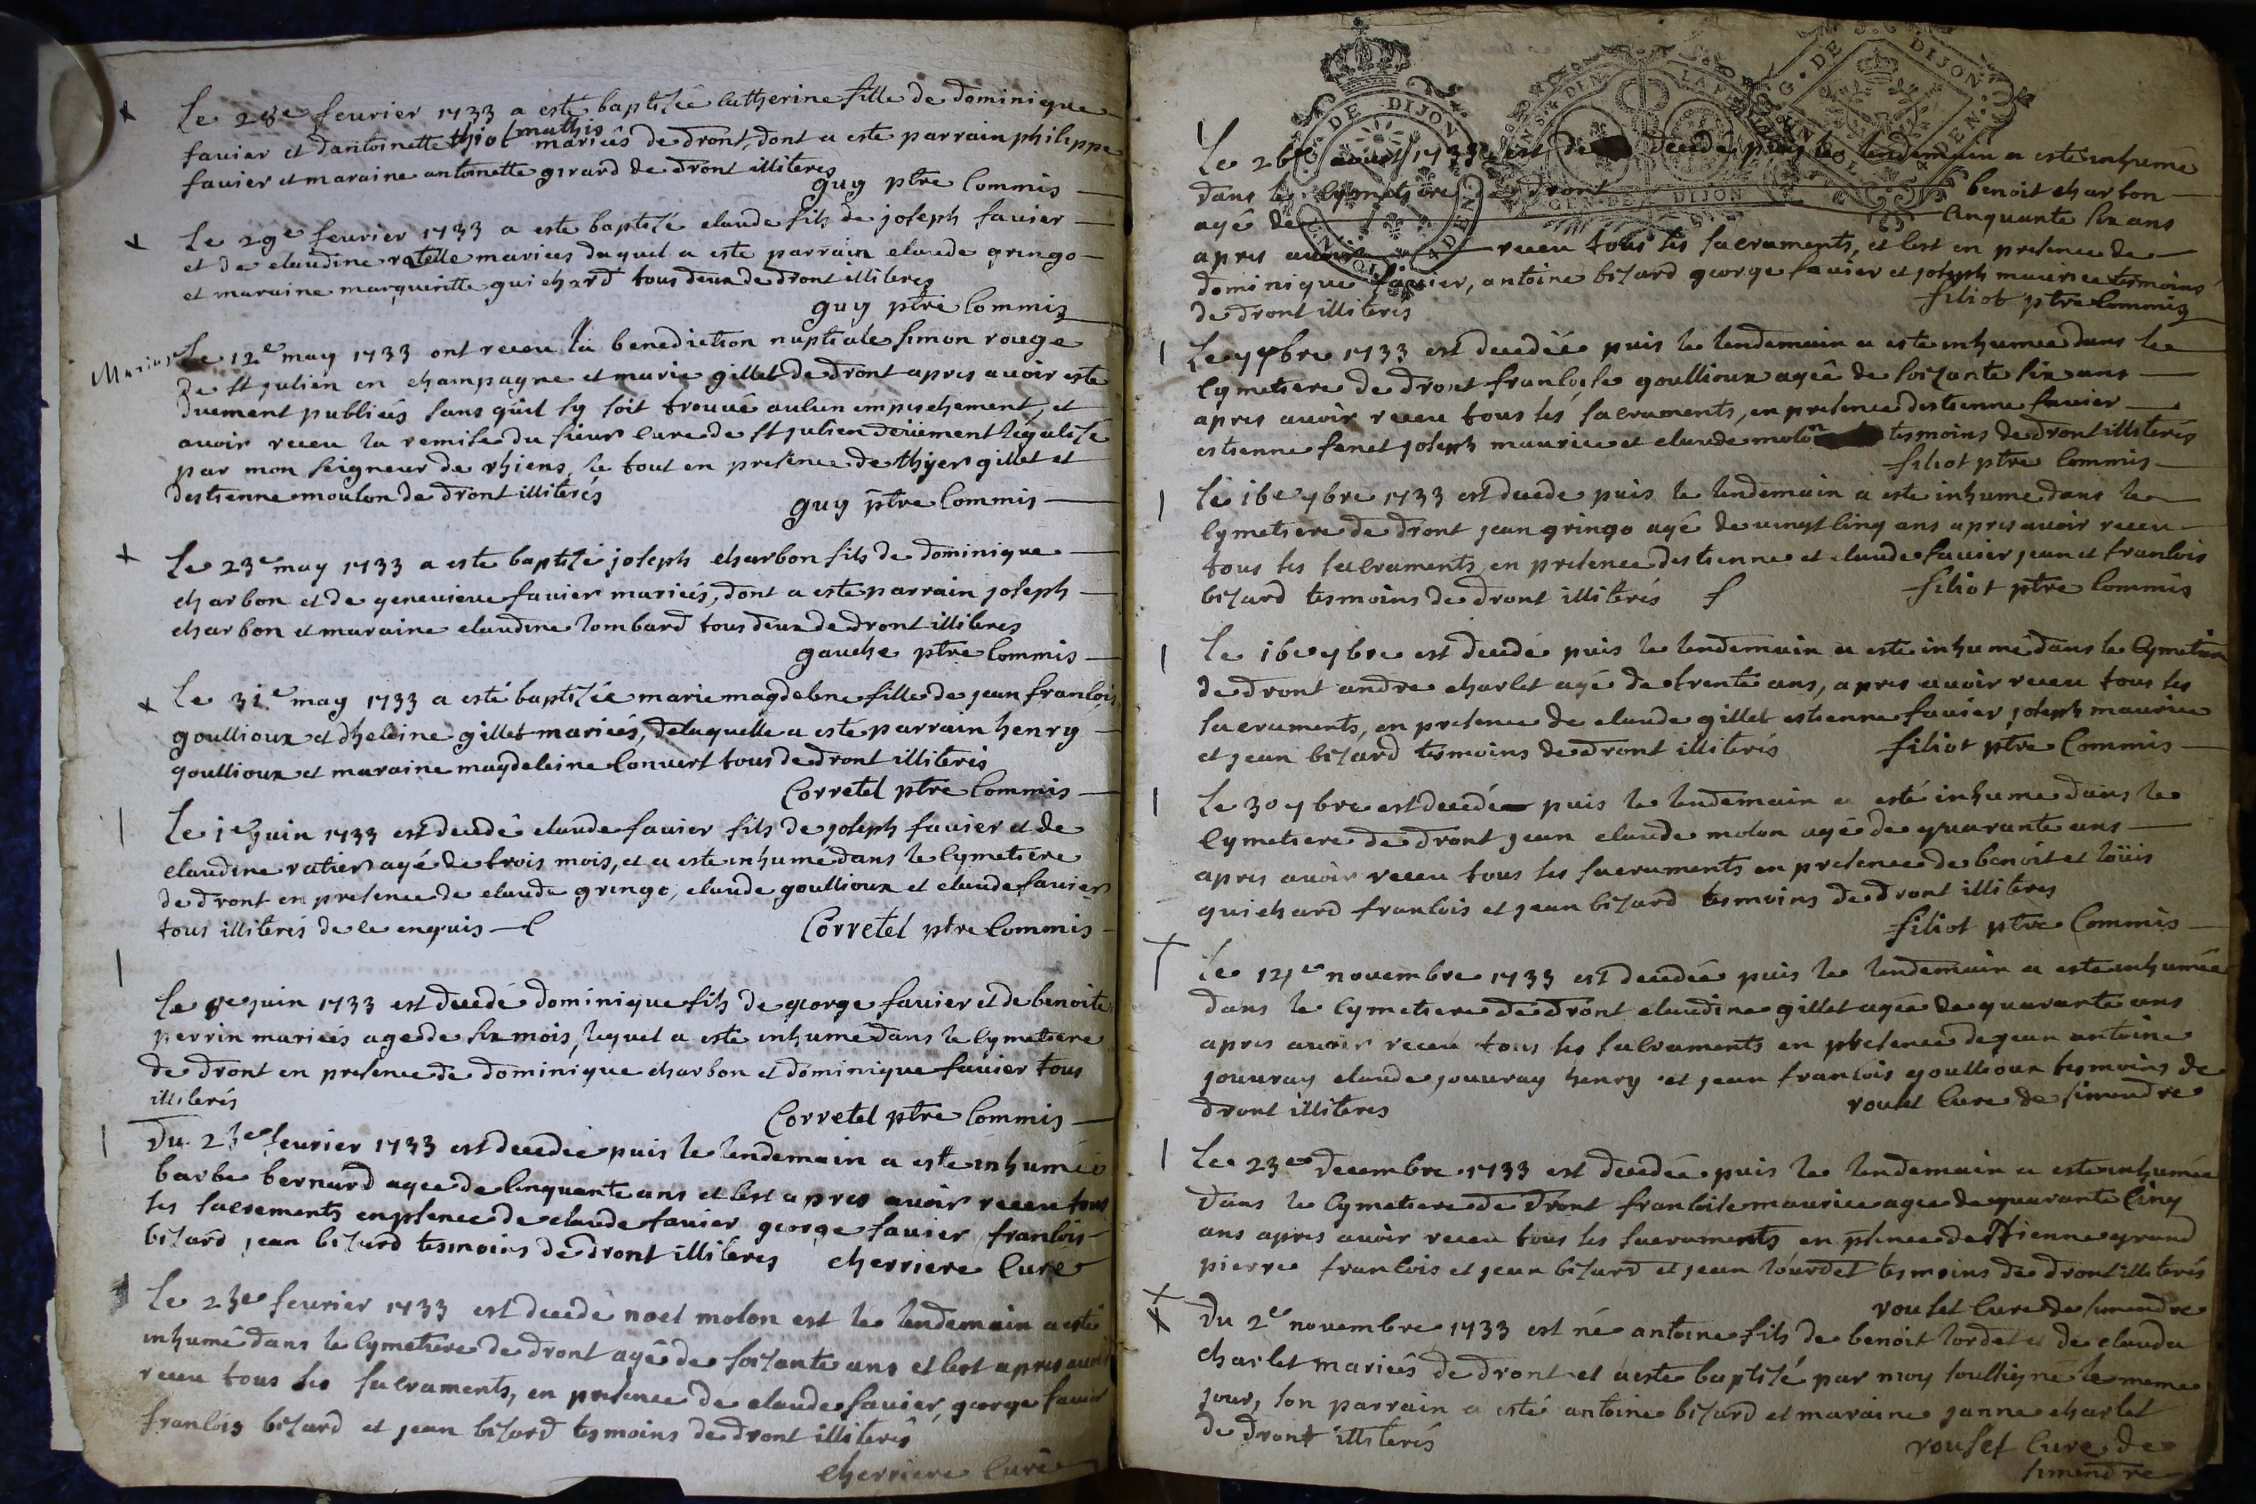 Le 28e feurier 1733 a esté baptisée catherine fille de dominique
fauier et dantoinette thiot mathis mariés de dront, dont a este parrain philippe
fauier et maraine antoinette girard de dront illiteres
guy ptre Commis
Le 29e feurier 1733 a este baptisé claude fils de joseph fauier
et de claudine ratelle mariees duquel a este parrain claude gringo
et maraine margueritte guichard tous deux de dront illiteres
guy ptre Commis
Mariage
Le 12e may 1733 ont receu la benediction nuptiale simon rouge
de st julien en champagne et marie gillet de dront apres auoir este
duement publiées sans quil sy soit trouué aulcun empeschement, et
auoir receu la remise du sieur Cure de st julien deüement légalisé
par mon seigneur de rhiens, le tout en presence de thyer gillet et
destienne moulon de dront illiterés
guy ptre Commis
Le 23e may 1733 a este baptisé joseph charbon fils de dominique
charbon et de geneuieue fauier mariés, dont a este parrain joseph
charbon et maraine claudine lombard tous deux de dront illiteres
gauche ptre Commis
Le 31e may 1733 a esté baptisée marie magdelene fille de jean francois
goullioux et dheleine gillet mariés, de laquelle a este parrain henry
goullioux et maraine magdeleine Conuert tous de dront illiterés
Corretel ptre Commis
Le 1er juin 1733 est decedé claude fauier fils de joseph fauier et de
claudine ratier agé de trois mois, et a este inhumé dans le Cymetiere
de dront en presence de claude gringo, claude goullioux et claude fauier
tous illiterés de ce enquis
Corretel ptre Commis
Le 8e juin 1733 est decedé dominique fils de george fauier et de benoite
perrin mariés age de six mois, lequel a este inhumé dans le Cymetiere
de dront en presence de dominique charbon et dominique fauier tous
illiterés
Corretel ptre Commis
Du 23e feurier 1733 est decedée puis le lendemain a este inhumée
barbe bernard agee de Cinquante ans et Cest apres auoir receu tous
les sacrements en psence de claude fauier george fauier francois
bizard jean bizard tesmoins de dront illiteres
cherriere Curé
Le 23e feurier 1733 est decedé noel molon est le lendemain a esté
inhumé dans le Cymetiere de dront agé de soizante ans et Cest apres auoir
receu tous les sacraments, en presence de claude fauier, george fauier
francois bizard et jean bizard tesmoins de dront illiterés
cherriere Curé
Le 26e aoust 1733 est decede puis le lendemain a este inhumé
dans le Cymetiere de dront benoit charbon
agé de Cinquante six ans
apres auoir receu tous les sacraments, et Cest en presence de
dominique fauier, antoine bizard george fauier et joseph maurice tesmoins
de dront illiterés
filiot ptre Commis
Le 7 7bre 1733 est decedée puis le lendemain a este inhumee dans le
Cymetiere de dront francoise goullioux agée de soizante six ans
apres auoir receu tous les sacraments, en presence destienne fauier
estienne fenet joseph maurice et claude molon tesmoins de dront illiterés
filiot ptre Commis
Le 16e 7bre 1733 est decede puis le lendemain a este inhume dans le
Cymetiere de dront jean gringo agé de uingt Cinq ans apres auoir receu
tous les sacraments, en presence destienne et claude fauier jean et francois
bizard tesmoins de dront illiterés
filiot ptre Commis
Le 16e 7bre est decedé puis le lendemain a este inhumé dans le Cymetiere
de dront andre charlet agé de trente ans, apres auoir receu tous les
sacraments, en presence de claude gillet estienne fauier joseph maurice
et jean bizard tesmoins de dront illiterés
filiot ptre Commis
Le 30 7bre est decedé puis le lendemain a esté inhume dans le
Cymetiere de dront jean claude molon agé de quarante ans
apres auoir receu tous les sacraments en presence de benoit et loüis
guichard francois et jean bizard tesmoins de dront illiteres
filiot ptre Commis
Le novembre 1733 est decedée puis le lendemain a este inhumée
dans le Cymetiere de dront claudine gillet agée de quarante ans
apres auoir receu tous les sacraments en presence de jean antoine
jouuray claude jouuray henry et jean francois goullioux tesmoins de
dront illiteres
rouset Cure de simendre
Le 23e decembre 1733 est decedée puis le lendemain a este inhumée
dans le Cymetiere de dront francoise maurice agee de quarante Cinq
ans apres auoir receu tous les sacraments en psence de stienne grand
pierre francois et jean bizard et jean lourdet tesmoins de dront illiterés
rouset Cure de simendre
Du 2e novembre 1733 est né antoine fils de benoit lordet et de clauda
charlet mariés de dront et a este baptisé par moy soussigné le meme
jour, son parrain a esté antoine bizard et maraine janne charlet
de dront illiterés
rouset Cure de
simendre
GEN DE DIJON